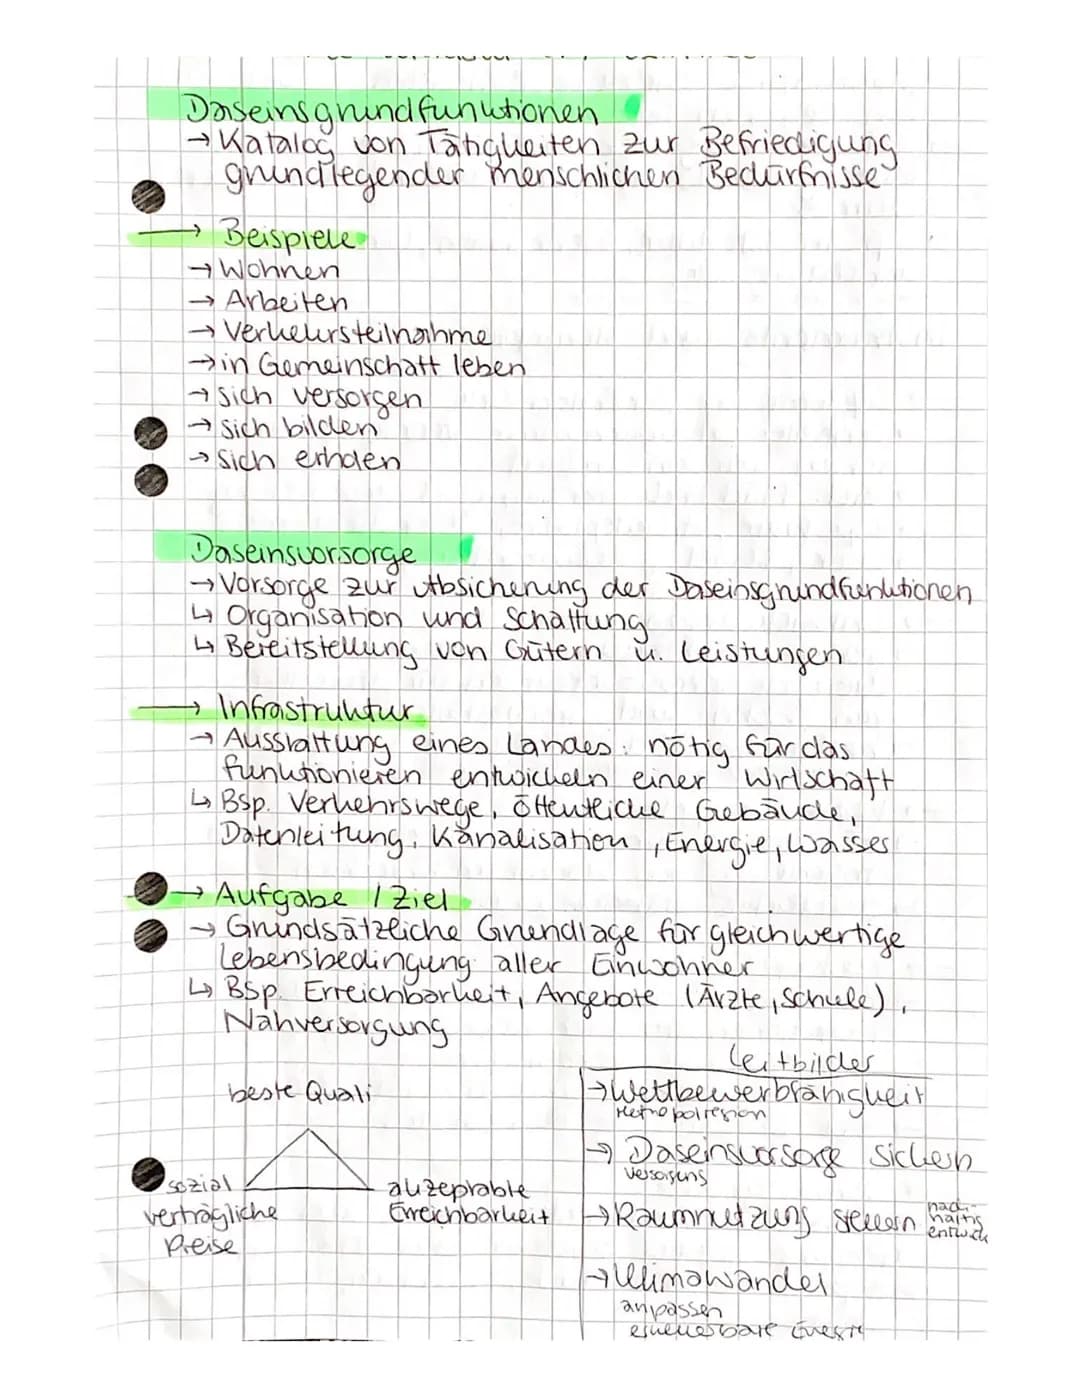 Daseinsgrundfunktionen
→ Katalog von Tätigkeiten zur Befriedigung
grundlegender menschlichen Bedürfnisse
→ Beispiele
→ Wohnen
→ Arbeiten
→ Verkehrsteilnahme
→ in Gemeinschaft leben
→ Sich versorgen
→ Sich bilden
→ Sich erholen
Daseinsvorsorge
→ Vorsorge zur Absicherung der Daseinsgrundfunktionen
↳ Organisation und Schaffung
↳ Bereitstellung von Gütern u. Leistungen
→ Infrastruktur
→ Ausstattung eines Landes: nötig für das
funktionieren entwickeln einer Wirtschaft
↳ Bsp. Verkehrswege, öffentliche Gebäude,
Datenleitung, Kanalisation, Energie, Wasses
→ Aufgabe / Ziel
→ Grundsätzliche Grundlage für gleichwertige
Lebensbedingung aller Einwohner
↳ Bsp. Erreichbarkeit, Angebote (Ärzte, Schule),
Nahversorgung
beste Quali
sozial
verträgliche
Preise
akzeptable
Erreichbarkeit
Leitbilder
→ Wettbewerbfähigkeit
Metropolregion
→ Daseinsvorsorge sichern
Versorgung
→ Raumnutzung steuern nach-
haltig
entwick
→ Klimawandel
anpassen
erneuerbare